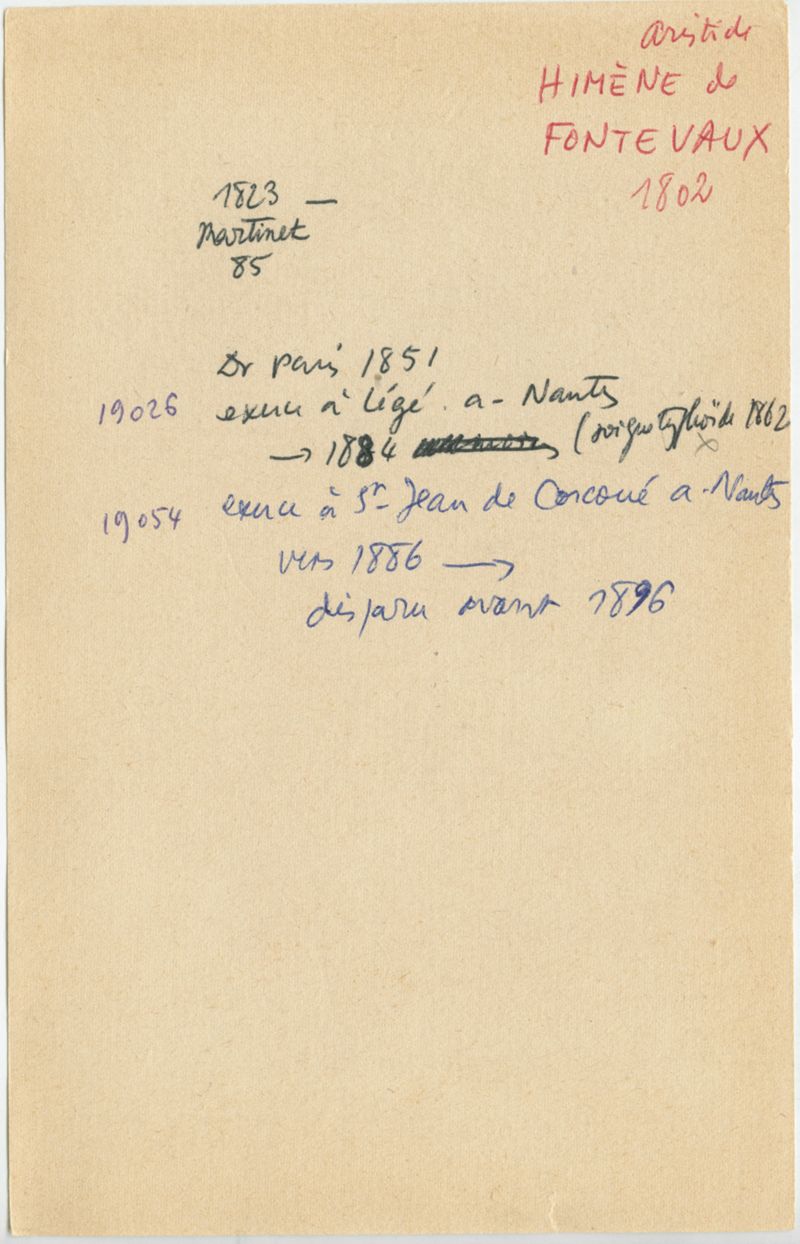 Aristide
HIMÈNE de
FONTEVAUX
1802
1823 —
Martinet
85
Dr Paris 1851
19026 exerce à Légé. a - Nantes
→ 1884 (soigne typhoïde 1862
19054 exerce à St-Jean de Corcoué a - Nantes
vers 1886 →
disparu avant 1896